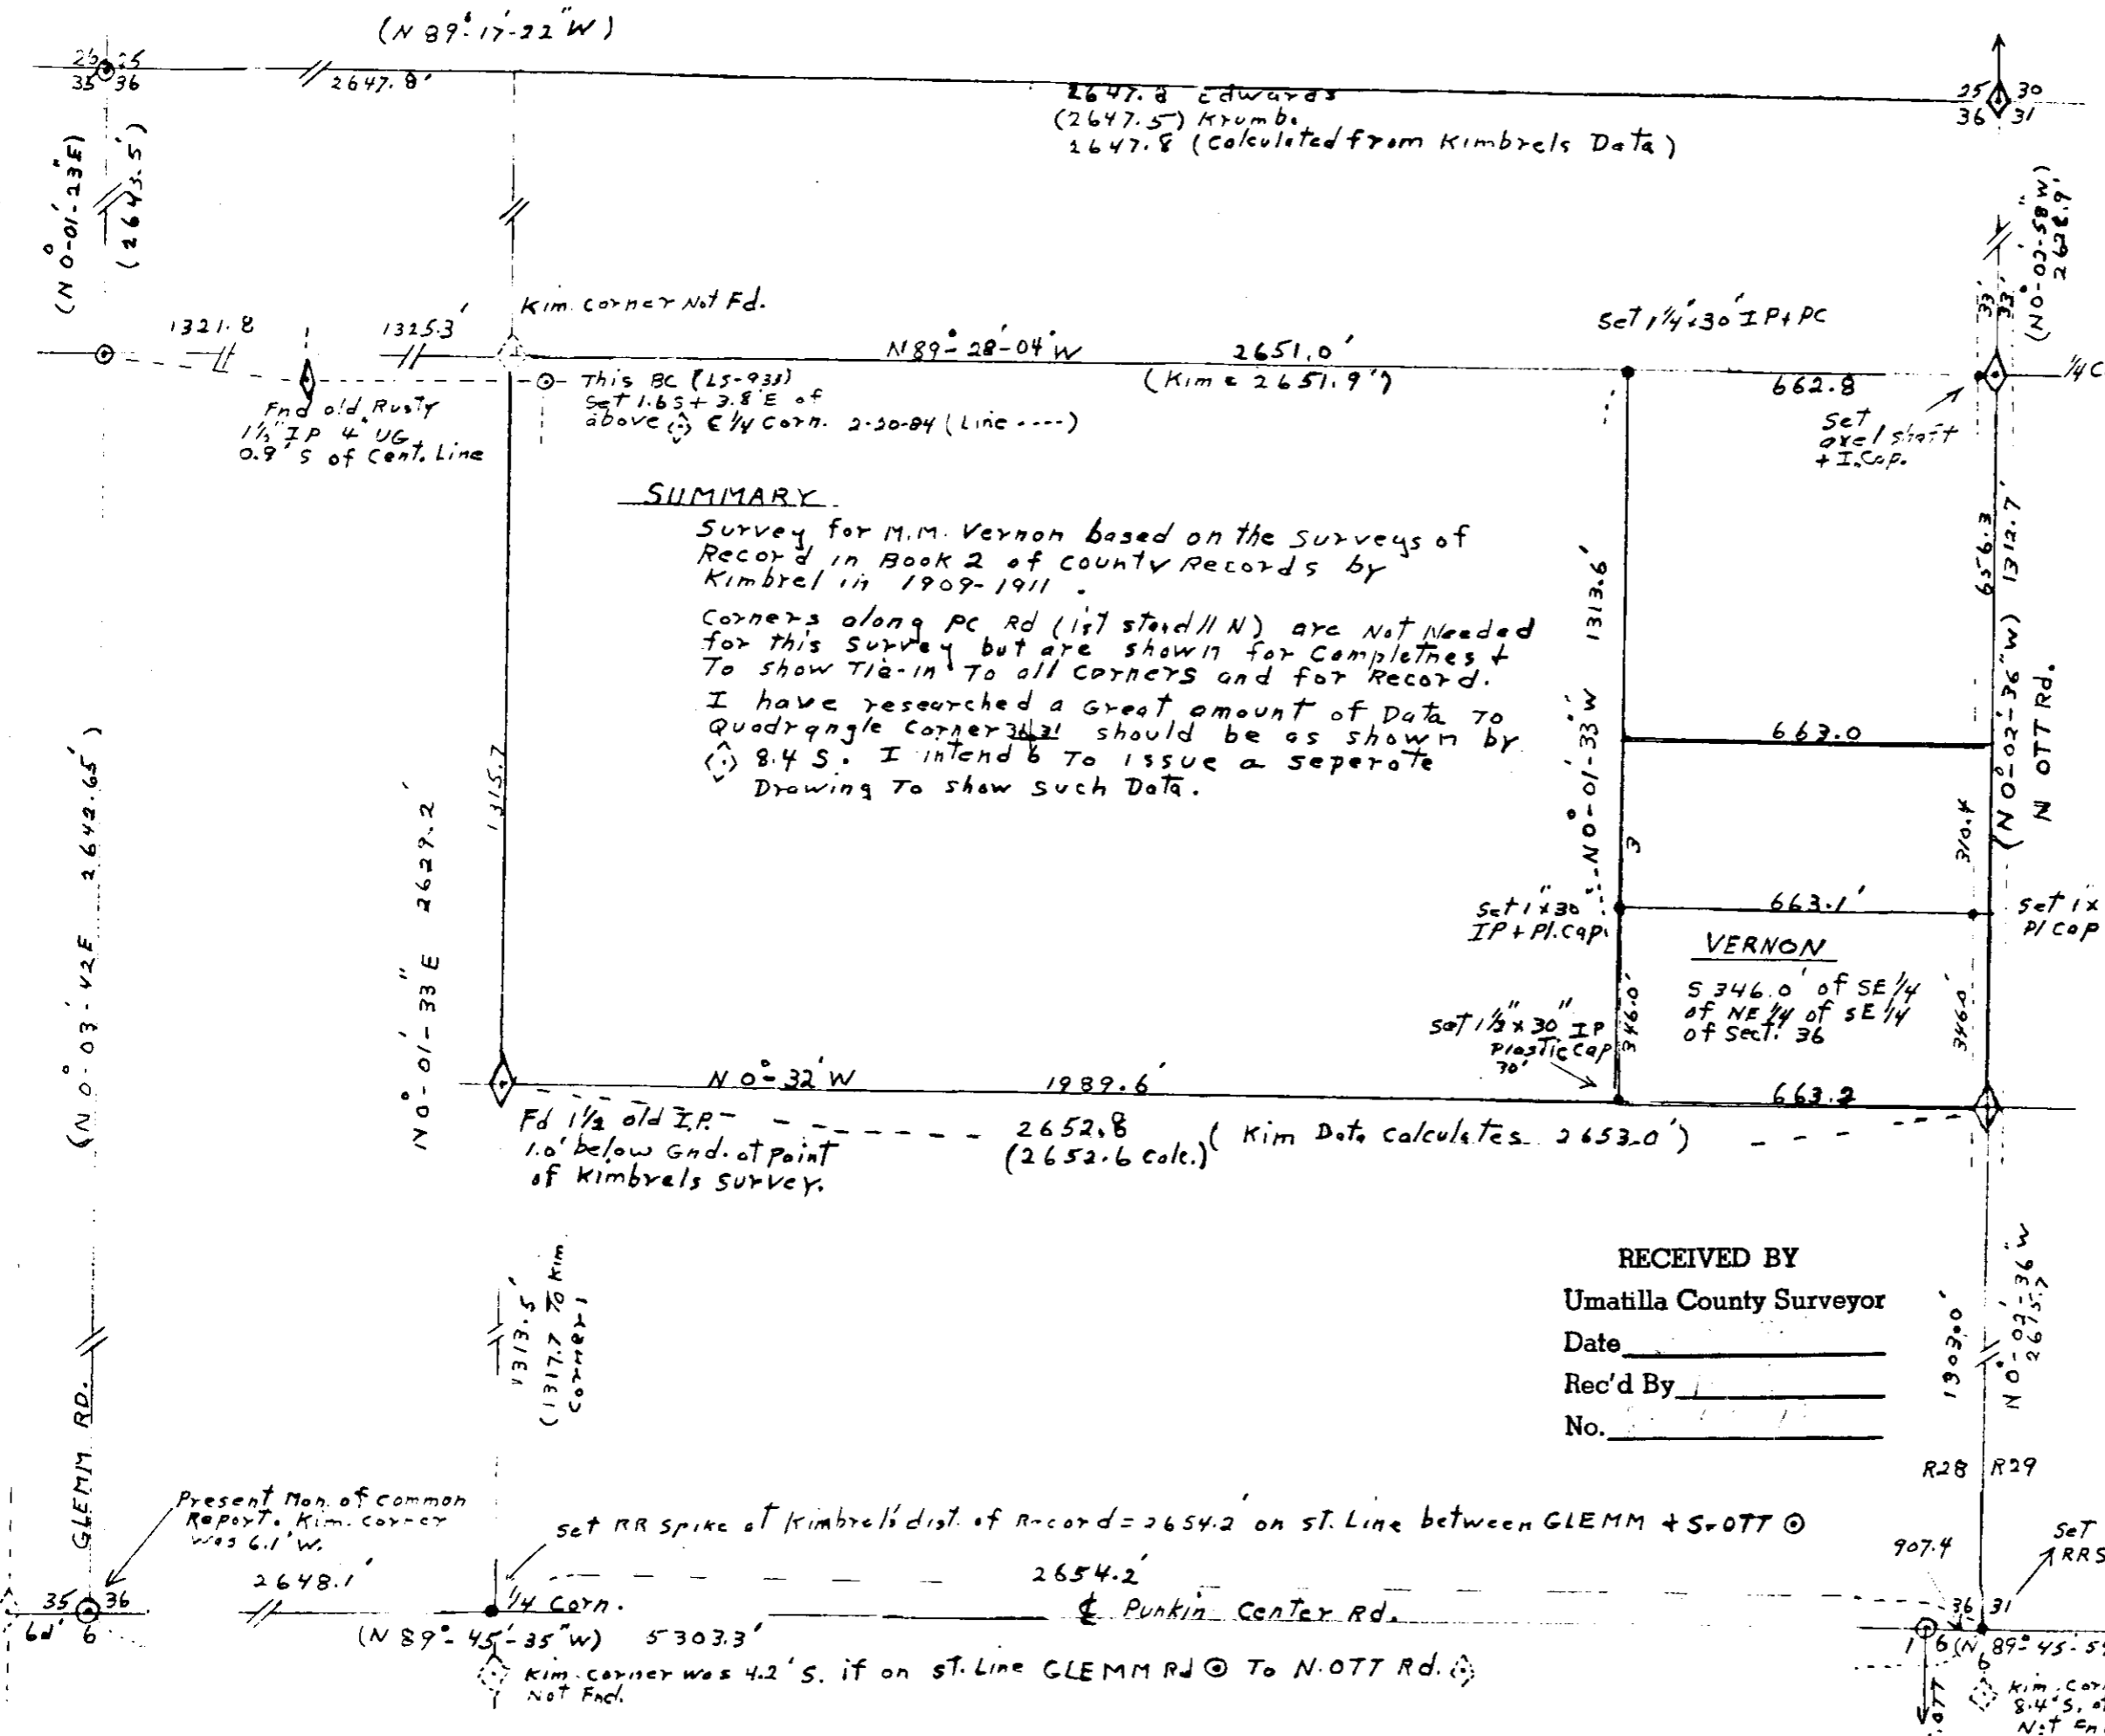 (N 89°-17'-22" W)
26 25
35 36
2647.8'
2647.8 Edwards
(2647.5) Krumb.
2647.8 (Calculated from Kimbrels Data)
25 30
36 31
(N 0°-01'-23"E)
(2643.5')
(N0°-02'-58"W)
2628.9'
33' 33'
Kim. corner Not Fd.
1321.8
1325.3'
N89°-28'-04"W
2651.0'
(Kim = 2651.9')
Set 1¼"x30" IP+PC
662.8
1/4 C
Set
axel shaft
+ I.Cap.
This BC (LS-933)
Set 1.6S + 3.8'E of
above E 1/4 Corn. 2-20-84 (Line ----)
Fnd old Rusty
1½" IP 4" UG
0.9' S of Cent. Line
SUMMARY
Survey for M.M. Vernon based on the Surveys of
Record in Book 2 of County Records by
Kimbrel in 1909-1911.
Corners along PC Rd (1st stand // N) are Not Needed
for this Survey but are shown for Completnes +
To show Tie-in To all Corners and for Record.
I have researched a Great amount of Data To
Quadrangle Corner 36 31 should be as shown by
6
8.4 S. I intend To issue a seperate
Drawing To show such Data.
1315.7
N0°-01'-33"E 2629.2'
(N 0°-03'-42E 2642.65')
N0°-01'-33"W 1313.6'
656.3
(N0°-02'-36"W) 1312.7'
N OTT Rd.
663.0
310.4
3
663.1'
Set 1"x30
IP + Pl. Cap.
Set 1x
Pl Cap
VERNON
S 346.0' of SE 1/4
of NE 1/4 of SE 1/4
of Sect. 36
346.0'
346.0'
Set 1½" x 30" IP
Plastic Cap
30'
N 0°-32'W
1989.6'
663.2
Fd 1½ old I.P.
1.0' below Gnd. at point
of Kimbrels survey.
2652.8
(2652.6 Calc.)
(Kim Data Calculates 2653.0')
1313.5'
(1317.7 To Kim.
Corner)
RECEIVED BY
Umatilla County Surveyor
Date
Rec'd By
No.
1903.0'
N0°-02'-36"W
2615.7
R28 R29
GLEMM RD.
Present Mon. of Common
Report. Kim. corner
was 6.1' W.
Set RR Spike at Kimbrel's dist. of Record = 2654.2' on St. Line between GLEMM + S-OTT
907.4
Set
RRS
2648.1'
2654.2'
35 36
6
1/4 Corn.
₵ Punkin Center Rd.
(N 89°-45'-35"W) 5303.3'
36 31
1 6
6
(N 89°-45'-5
Kim. Corner was 4.2' S. if on St. Line GLEMM Rd To N.OTT Rd.
Not Fnd.
OTT
Kim. Cor
8.4' S. o
Not Fn